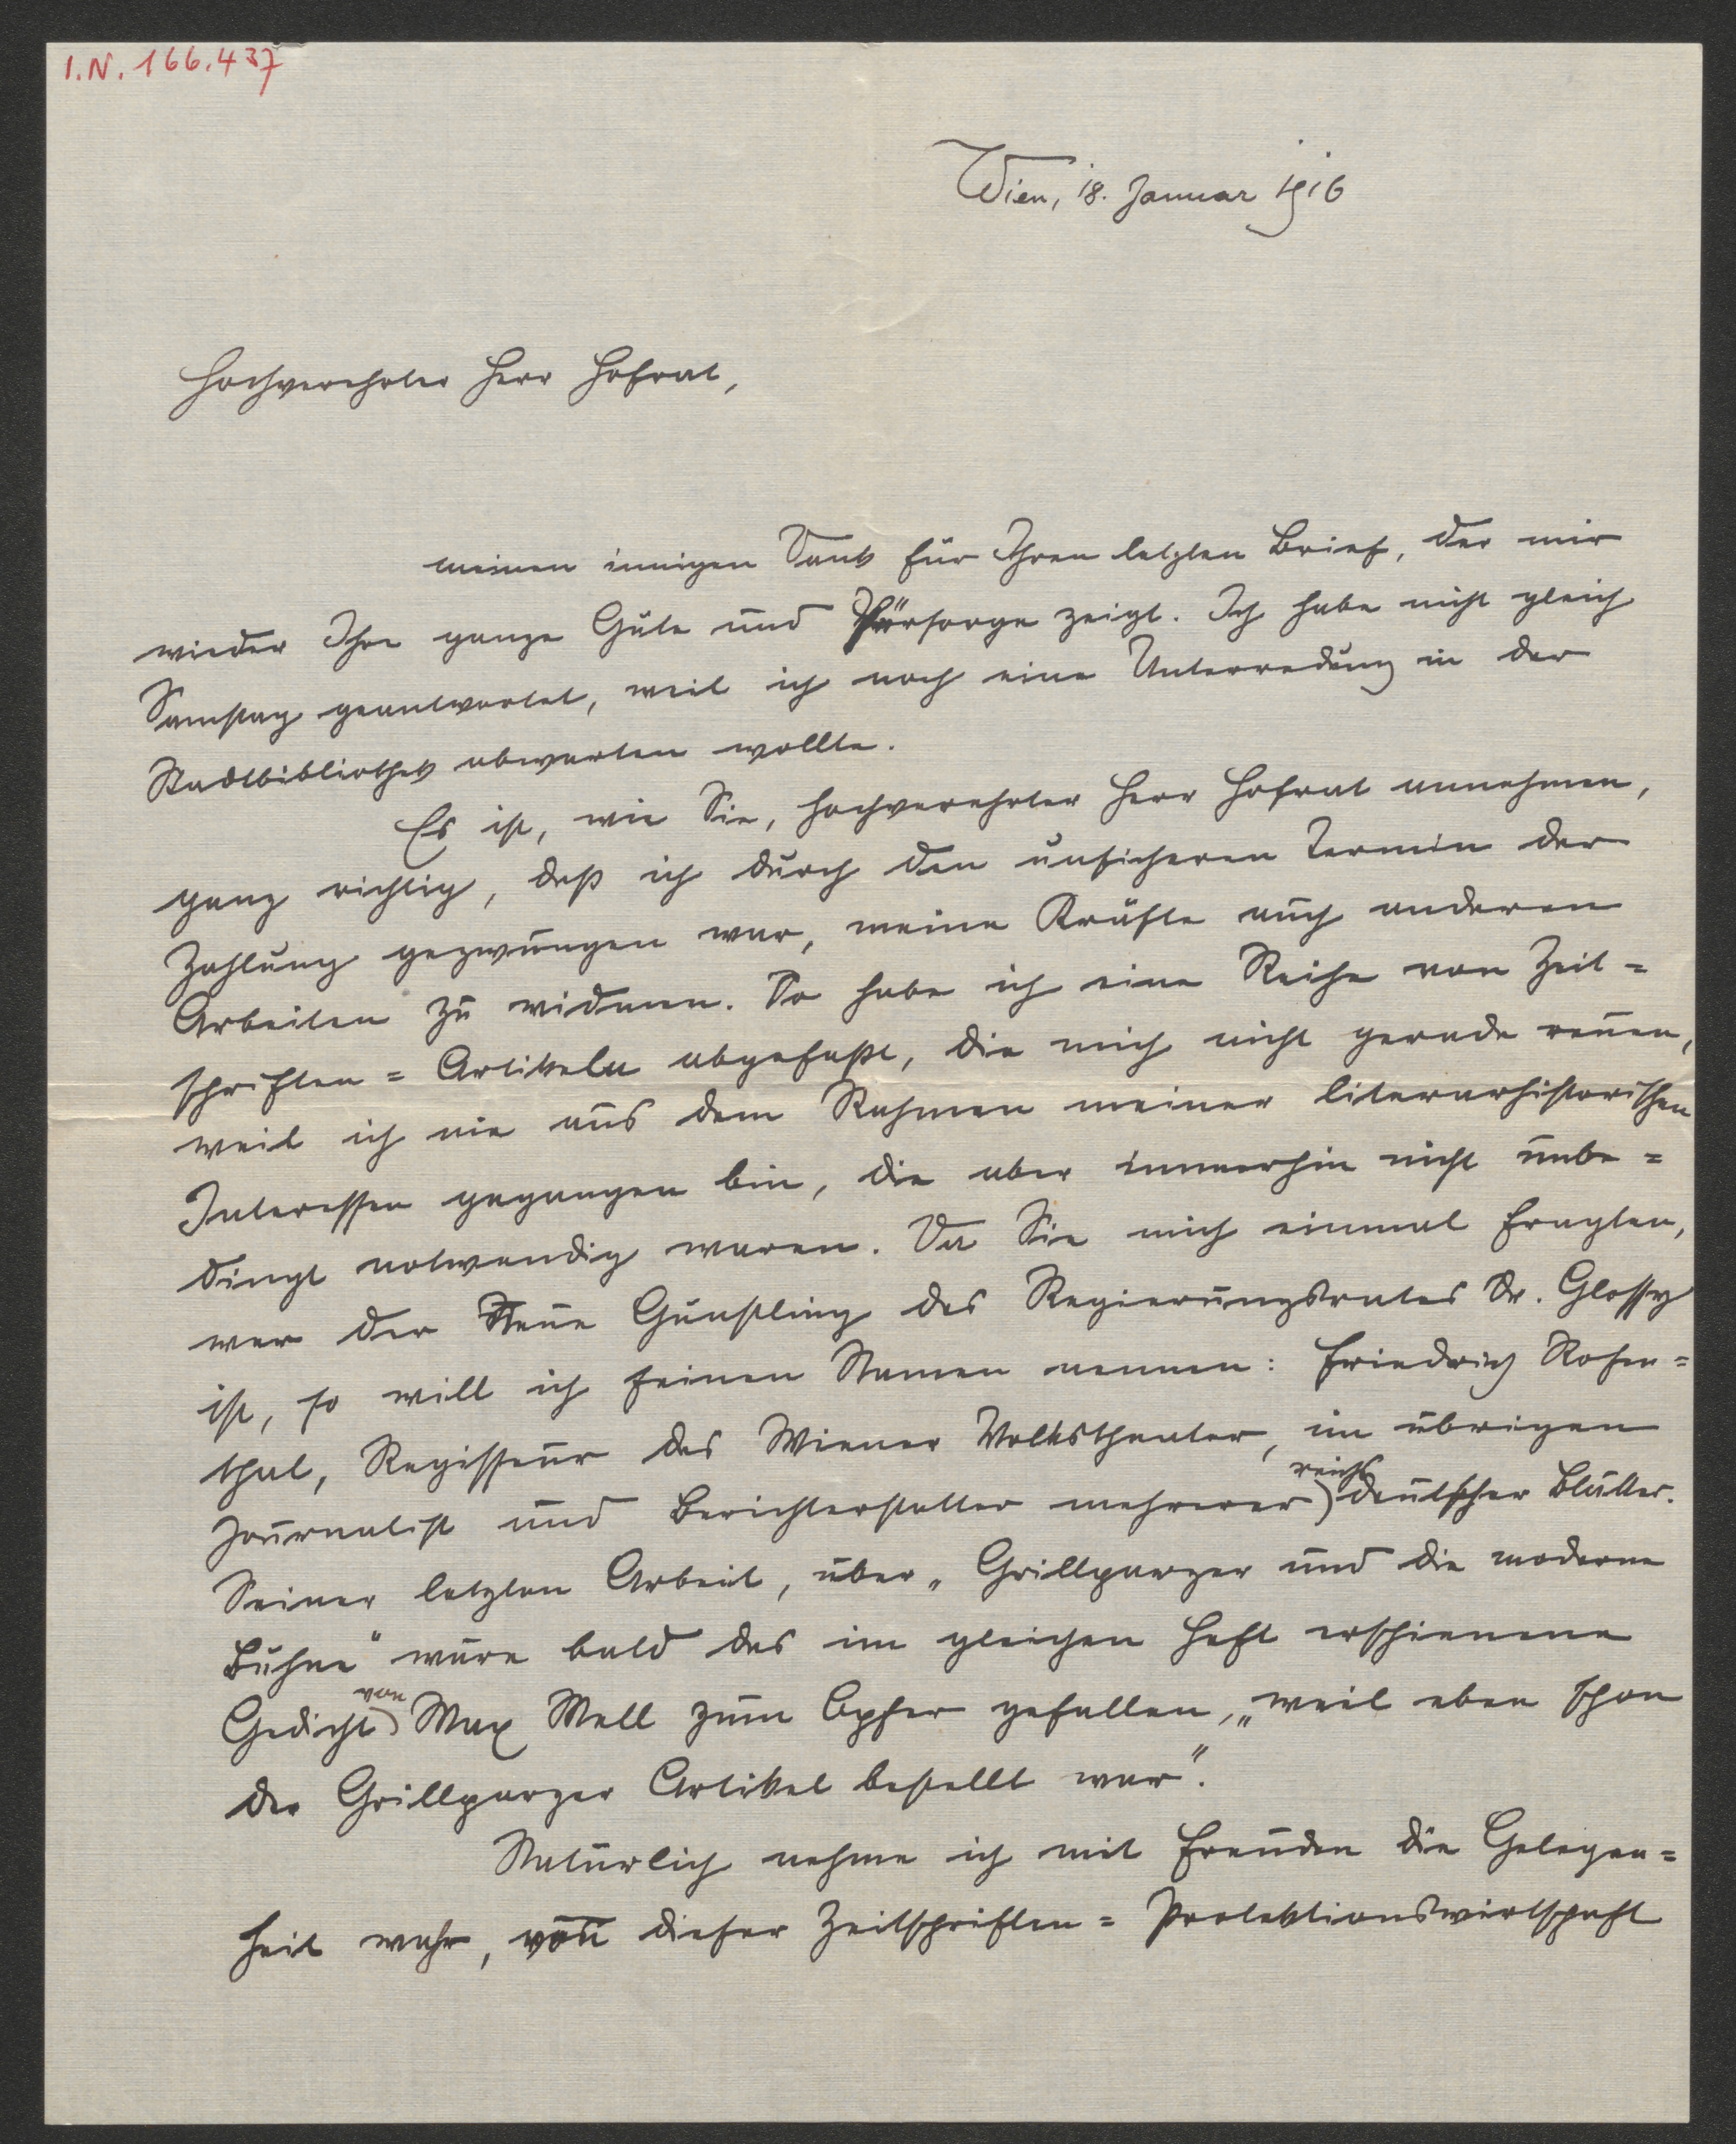 I.N. 166.437
Wien, 18. Januar 1916
Hochverehrter Herr Hofrat,
meinen innigen Dank für Ihren letzten Brief, der mir
wieder Ihre ganze Güte und Fürsorge zeigt. Ich habe nicht gleich
Samstag geantwortet, weil ich noch eine Unterredung in der
Stadtbibliothek abwarten wollte.
Es ist, wie Sie, hochverehrter Herr Hofrat annehmen,
ganz richtig, daß ich durch den unsicheren Termin der
Zahlung gezwungen war, meine Kräfte auch anderen
Arbeiten zu widmen. So habe ich eine Reihe von Zeit=
schriften=Artikeln abgefaßt, die mich nicht gerade reuen,
weil ich nie aus dem Rahmen meiner literarhistorischen
Interessen gegangen bin, die aber immerhin nicht unbe=
dingt notwendig waren. Da Sie mich einmal fragten,
wer der Neue Günstling des Regierungsrates Dr. Glossy
ist, so will ich seinen Namen nennen: Friedrich Rosen=
thal, Regisseur des Wiener Volkstheater, im übrigen
Journalist und Berichterstatter mehrerer reichsdeutscher Blätter.
Seiner letzten Arbeit, über „Grillparzer und die moderne
Bühne" wäre bald das im gleichen Heft erschienene
Gedicht von Max Mell zum Opfer gefallen, „weil eben schon
der Grillparzer Artikel bestellt war".
Natürlich nehme ich mit Freuden die Gelegen=
heit wahr, von dieser Zeitschriften=Protektionswirtschaft